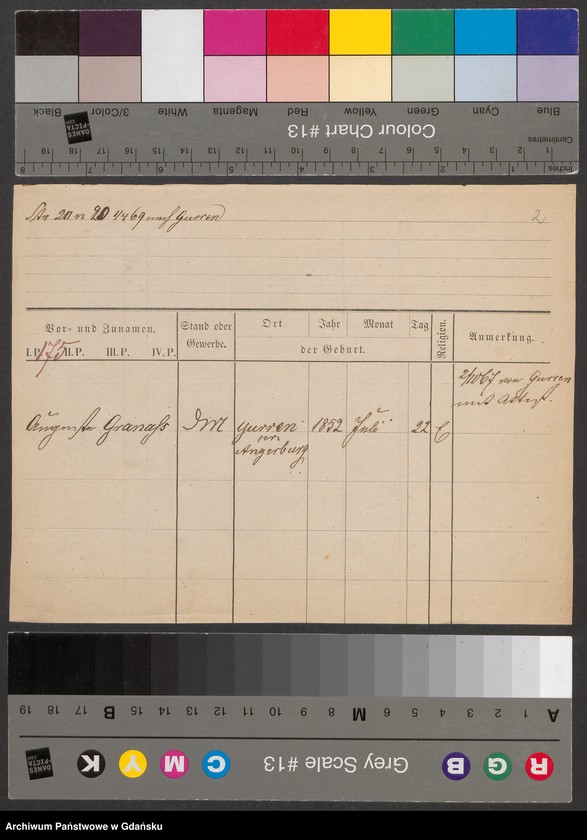 Blue Cyan Green Yellow Red Magenta White 3/Color Black
Colour Chart #13
DANES
-PICTA
.COM
Centimetres
1 2 3 4 5 6 7 8 9 10 11 12 13 14 15 16 17 18 19
Inches 1 2 3 4 5 6 7 8
nach Gurren 2
Vor- und Zunamen. Stand oder Gewerbe. Ort Jahr Monat Tag Religion. Anmerkung.
der Geburt.
I. P. II. P. III. P. IV. P.
175
2/10 67 von Gurren
mit Attest.
Auguste Granass Gurren 1852 Juli 22
Angerburg
A 1 2 3 4 5 6 7 8 M 9 10 11 12 13 14 15 B 16 17 18 19
R G B Grey Scale #13 C M Y K
DANES
-PICTA
.COM
Archiwum Państwowe w Gdańsku